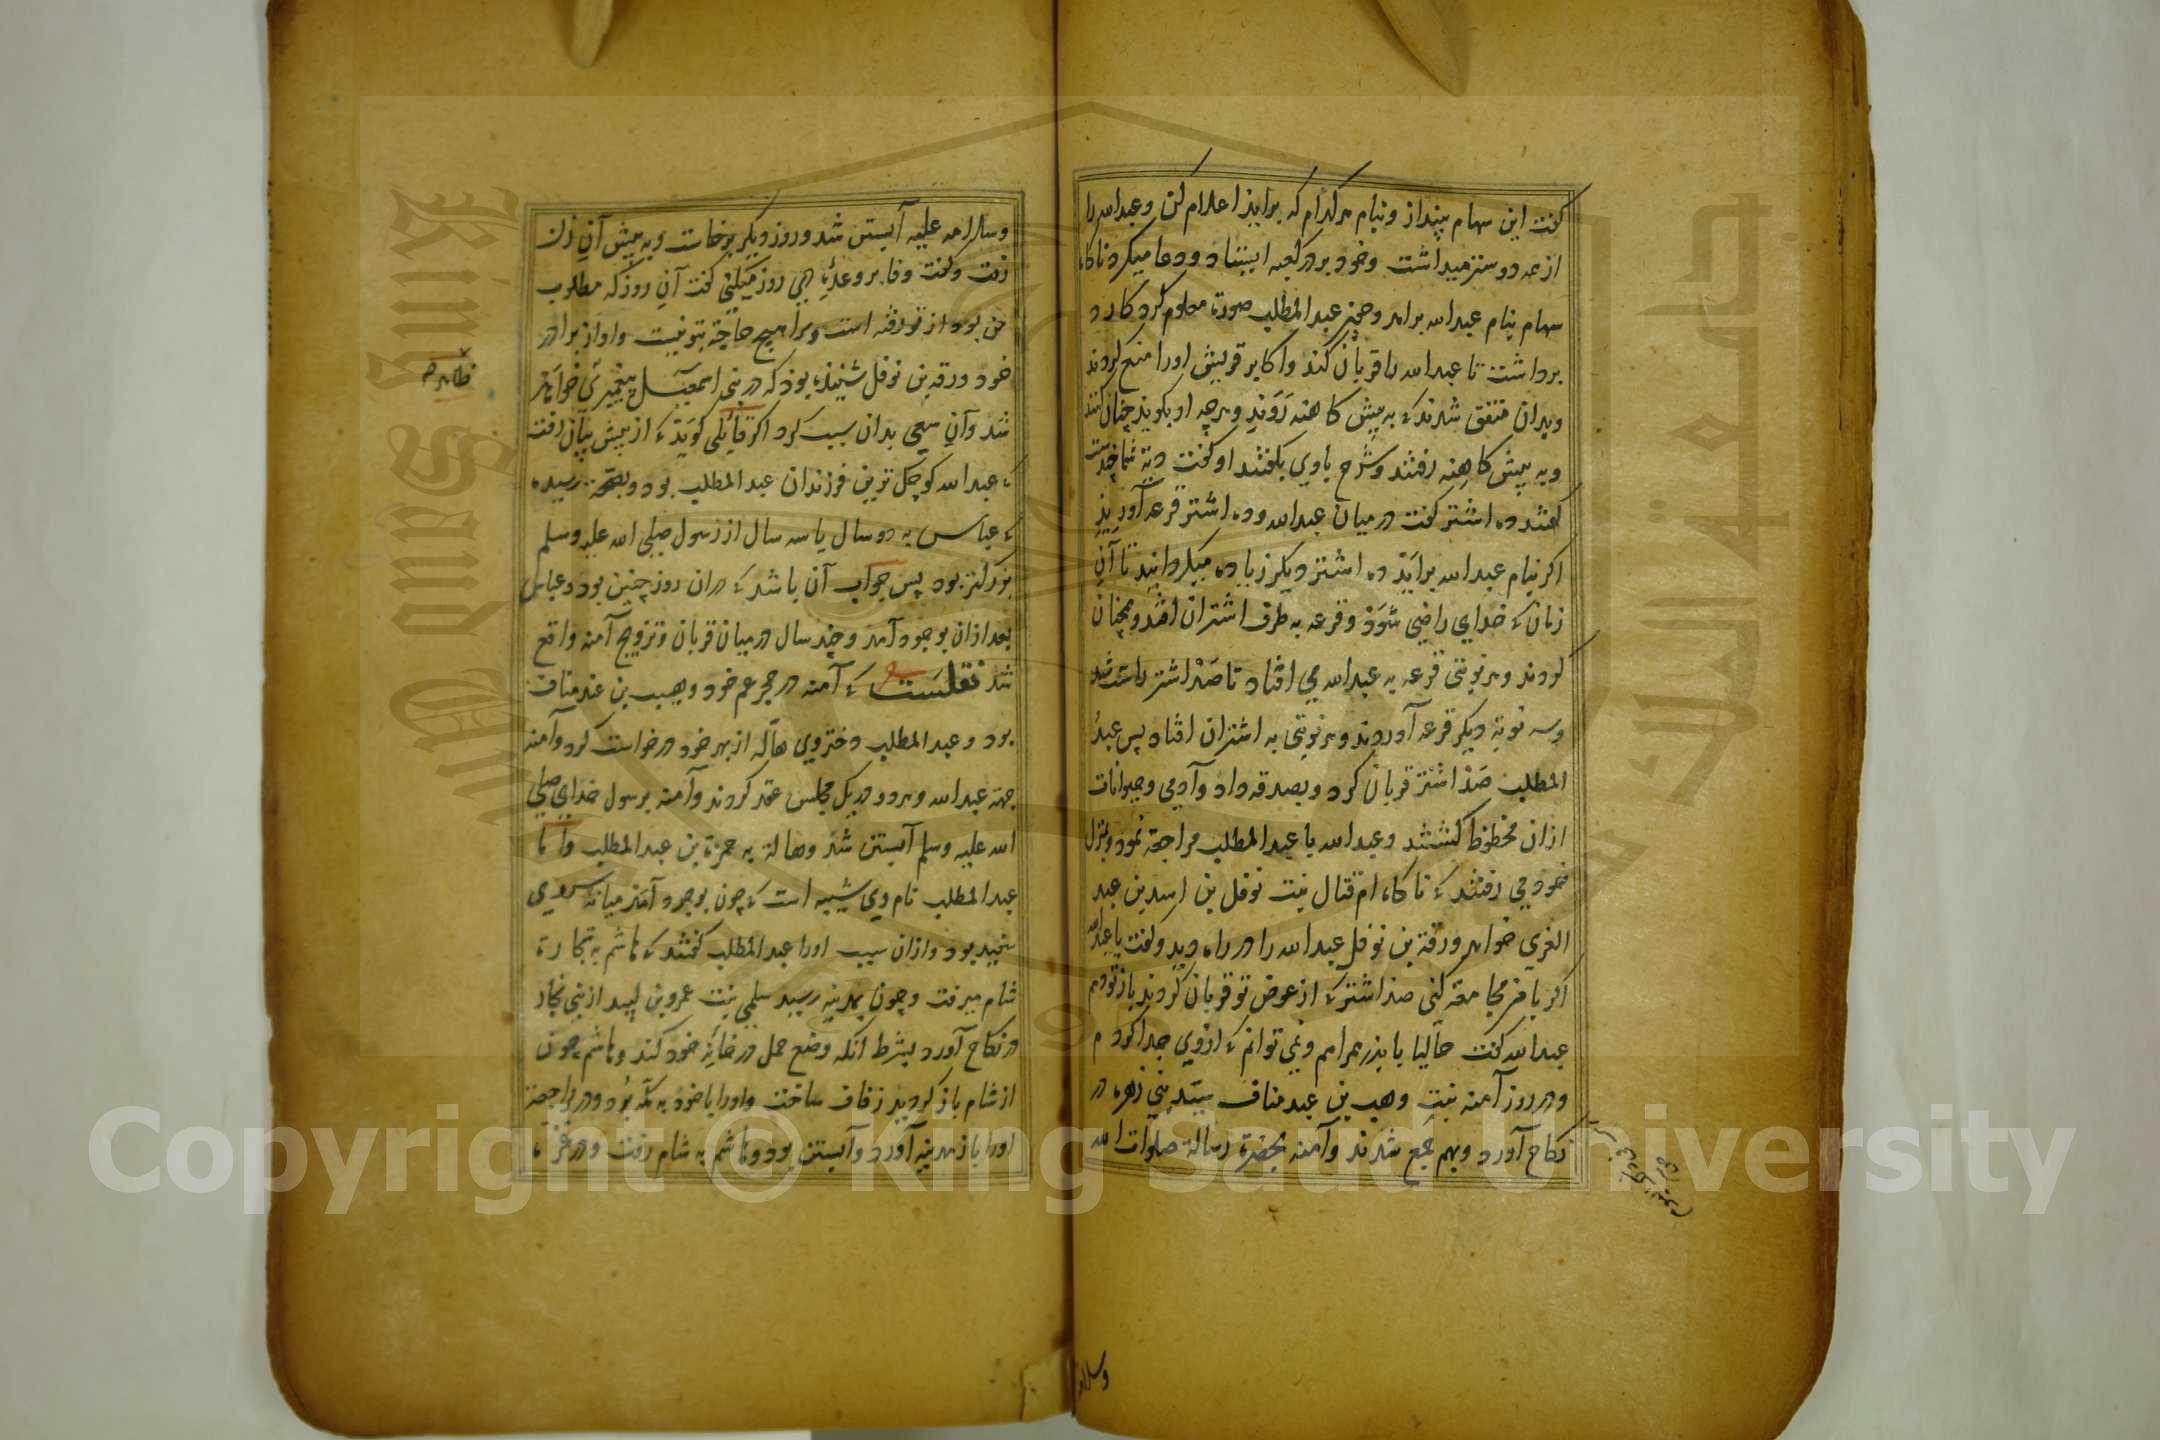 گفت این سهام بینداز و بنام هر کدام که برآید اعلام کن و عبدالله را
از همه دوستر میداشت و خود بر در کعبه ایستاد و دعا میکرد ناگاه
سهام بنام عبدالله برآمد و چون عبدالمطلب صورة معلوم کرد کارد
برداشت تا عبدالله را قربان کند و اکابر قریش او را منع کردند
وبدان متفق شدند که به پیش کاهنه روند و هرچه او بگوید چنان کنند
وبه پیش کاهنه رفتند وشرح باوی بگفتند او گفت دیة شما چندست
گفتند ده اشتر گفت در میان عبدالله و ده اشتر قرعه آورید
اگر بنام عبدالله برآید ده اشتر دیگر زیاده میگردانید تا آن
زمان که خدای راضی شود و قرعه به طرف اشتران افتد و همچنان
کردند و هر نوبتی قرعه به عبدالله می افتاد تا صد اشتر راست شد
وسه نوبة دیگر قرعه آوردند و هر نوبتی به اشتران افتاد پس عبد
المطلب صد اشتر قربان کرد و بصدقه داد و آدمی و حیوانات
ازان محظوظ گشتند و عبدالله با عبدالمطلب مراجعة نمود و بمنزل
خود می رفتند که ناگاه ام قتال بنت نوفل بن اسد بن عبد
العزی خواهر ورقة بن نوفل عبدالله را در راه دید و گفت یا عبدالله
اگر با من مجامعة کنی صد اشتر که از عوض تو قربان کردند باز تو دهم
عبدالله گفت حالیا با پدر همراهم و نمی توانم که از وی جدا کردم
ودر روز آمنه بنت وهب بن عبد مناف سید بنی زهره در
نکاح آورد وبهم جمع شدند وآمنه بحضرة رسالة صلوات الله
وسلامه
وسلامه علیه آبستن شد و روز دیگر برخاست وبه پیش آن زن
رفت و گفت وفا بر وعدهٔ دی روز میکنی گفت آن روز که مطلوب
من بود از تو رفته است ومرا هیچ حاجة بتو نیست واو از برادر
خود ورقه بن نوفل شنیده بود که در بنی اسمعیل پیغمبری خواهد
شد وآن سعی بدان سبب کرد اگر قائلی گوید که از پیش بیان رفت
که عبدالله کوچکترین فرزندان عبدالمطلب بود وبصحة رسیده
که عباس به دو سال یا سه سال از رسول صلی الله علیه وسلم
بزرگتر بود پس جواب آن باشد که دران روز چنین بود و عباس
بعد ازان بوجود آمد وچند سال در میان قربان وتزویج آمنه واقع
شد نقلست که آمنه در حجر عم خود وهیب بن عبد مناف
بود وعبدالمطلب دختر وی هاله از بهر خود درخواست کرد وآمنه
جهة عبدالله وهر دو در یک مجلس عقد کردند وآمنه برسول خدای صلی
الله علیه وسلم آبستن شد وهالة به حمزة بن عبدالمطلب واما
عبدالمطلب نام وی شیبه است که چون بوجود آمد میانهٔ سروی
سپید بود وازان سبب اورا عبدالمطلب گفتند که هاشم به تجارة
شام میرفت وچون بمدینه رسید سلمی بنت عمرو بن لبید از بنی نجار
در نکاح آورد بشرط آنکه وضع حمل در خانهٔ خود کند وهاشم چون
از شام باز گردید زفاف ساخت واورا با خود به مکه برد ودر مراجعة
اورا باز مدینه آورد وآبستن بود وهاشم به شام رفت ودر غزه